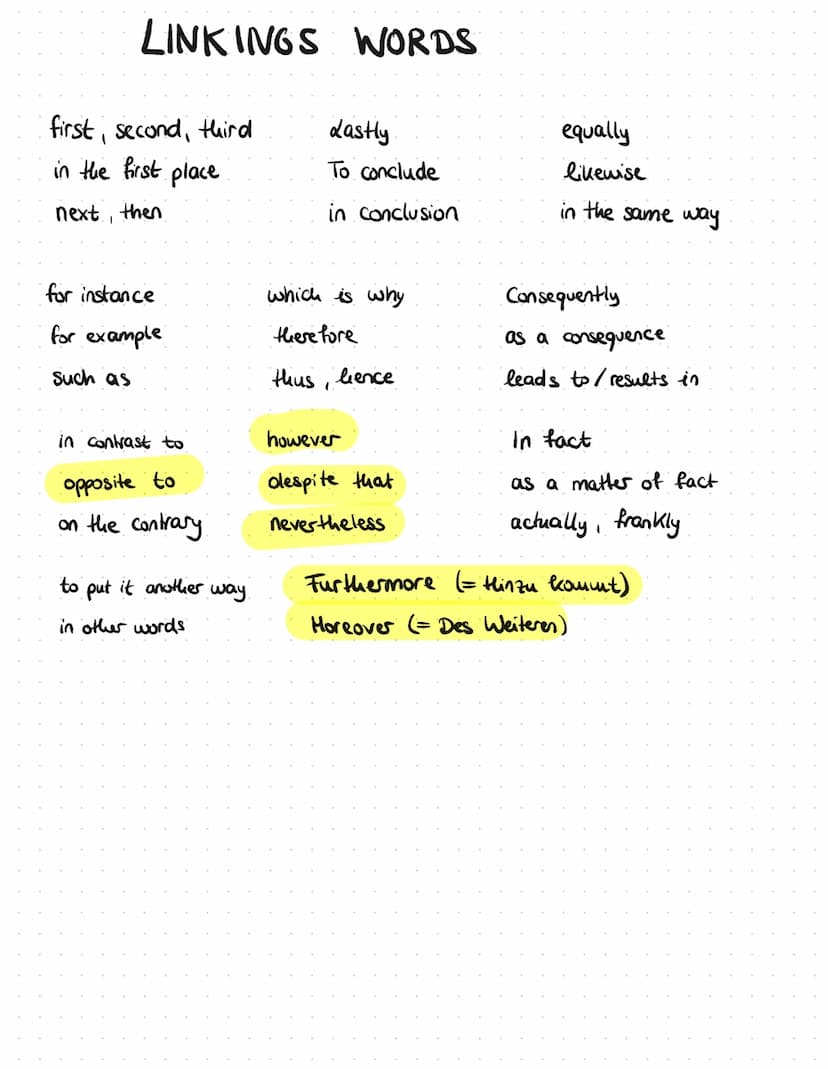 LINKINGS WORDS
first, second, third
in the first place
next, then
Lastly
To conclude
in conclusion
equally
likewise
in the same way
for instance
for example
such as
which is why
therefore
thus, hence
Consequently
as a consequence
leads to/results in
in contrast to
opposite to
on the contrary
however
despite that
nevertheless
In fact
as a matter of fact
actually, frankly
to put it another way
in other words
Furthermore (= Hinzu kommt)
Moreover (= Des Weiteren)